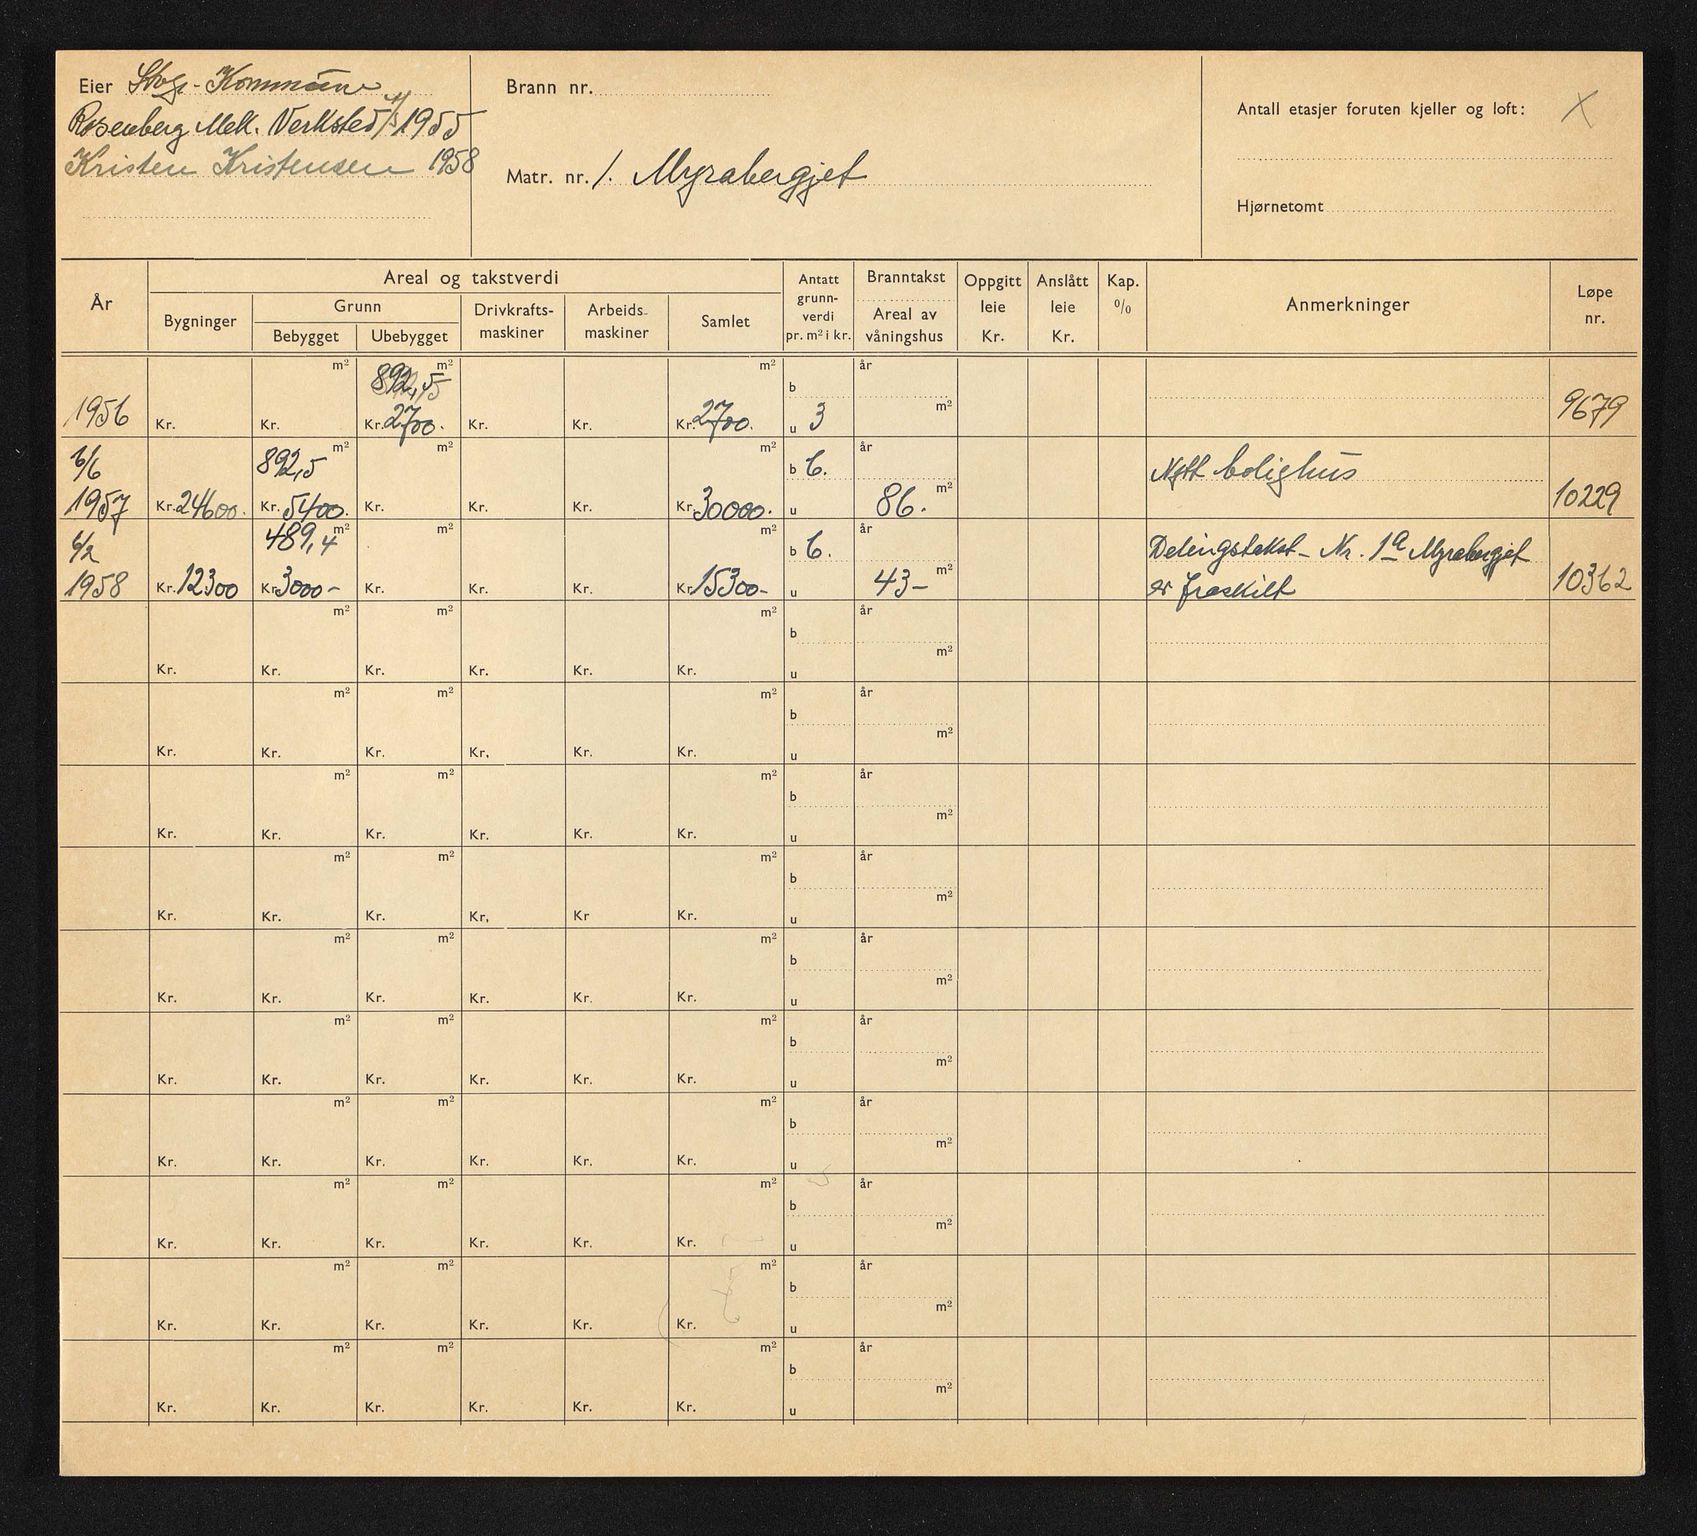 Eier Stvgr. Kommune
Rosenberg Mek. Verksted A/S 1955
Kristen Kristensen 1958
Brann nr.
Matr. nr. 1. Myrabergjet
Antall etasjer foruten kjeller og loft: X
Hjørnetomt
År
Areal og takstverdi
Bygninger
Grunn
Bebygget Ubebygget
Drivkrafts-maskiner
Arbeids-maskiner
Samlet
Antatt grunn-verdi pr. m² i kr.
Branntakst
Areal av våningshus
Oppgitt leie Kr.
Anslått leie Kr.
Kap. %
Anmerkninger
Løpe nr.
m² 892,5 m² m² b år
1956 Kr. Kr. Kr. 2700. Kr. Kr. Kr. 2700. u 3 m² 9679
6/6 892,5 m² m² m² b 6. år Nytt bolighus
1957 Kr. 24600. Kr. 5400. Kr. Kr. Kr. Kr. 30000. u 86. m² 10229
6/2 489,4 m² m² m² b 6. år Delingstakst - Nr. 1a Myrabergjet
1958 Kr. 12300 Kr. 3000- Kr. Kr. Kr. Kr. 15300- u 43- m² er fraskilt 10362
m² m² m² b år
Kr. Kr. Kr. Kr. Kr. Kr. u m²
m² m² m² b år
Kr. Kr. Kr. Kr. Kr. Kr. u m²
m² m² m² b år
Kr. Kr. Kr. Kr. Kr. Kr. u m²
m² m² m² b år
Kr. Kr. Kr. Kr. Kr Kr. u m²
m² m² m² b år
Kr. Kr. Kr. Kr. Kr. Kr. u m²
m² m² m² b år
Kr. Kr. Kr. Kr. Kr. Kr. u m²
m² m² m² b år
Kr. Kr. Kr. Kr. Kr. Kr. u m²
m² m² m² b år
Kr. Kr. Kr. Kr. Kr. Kr. u m²
m² m² m² b år
Kr. Kr. Kr. Kr. Kr. Kr. u m²
m² m² m² b år
Kr. Kr. Kr. Kr. Kr. Kr. u m²